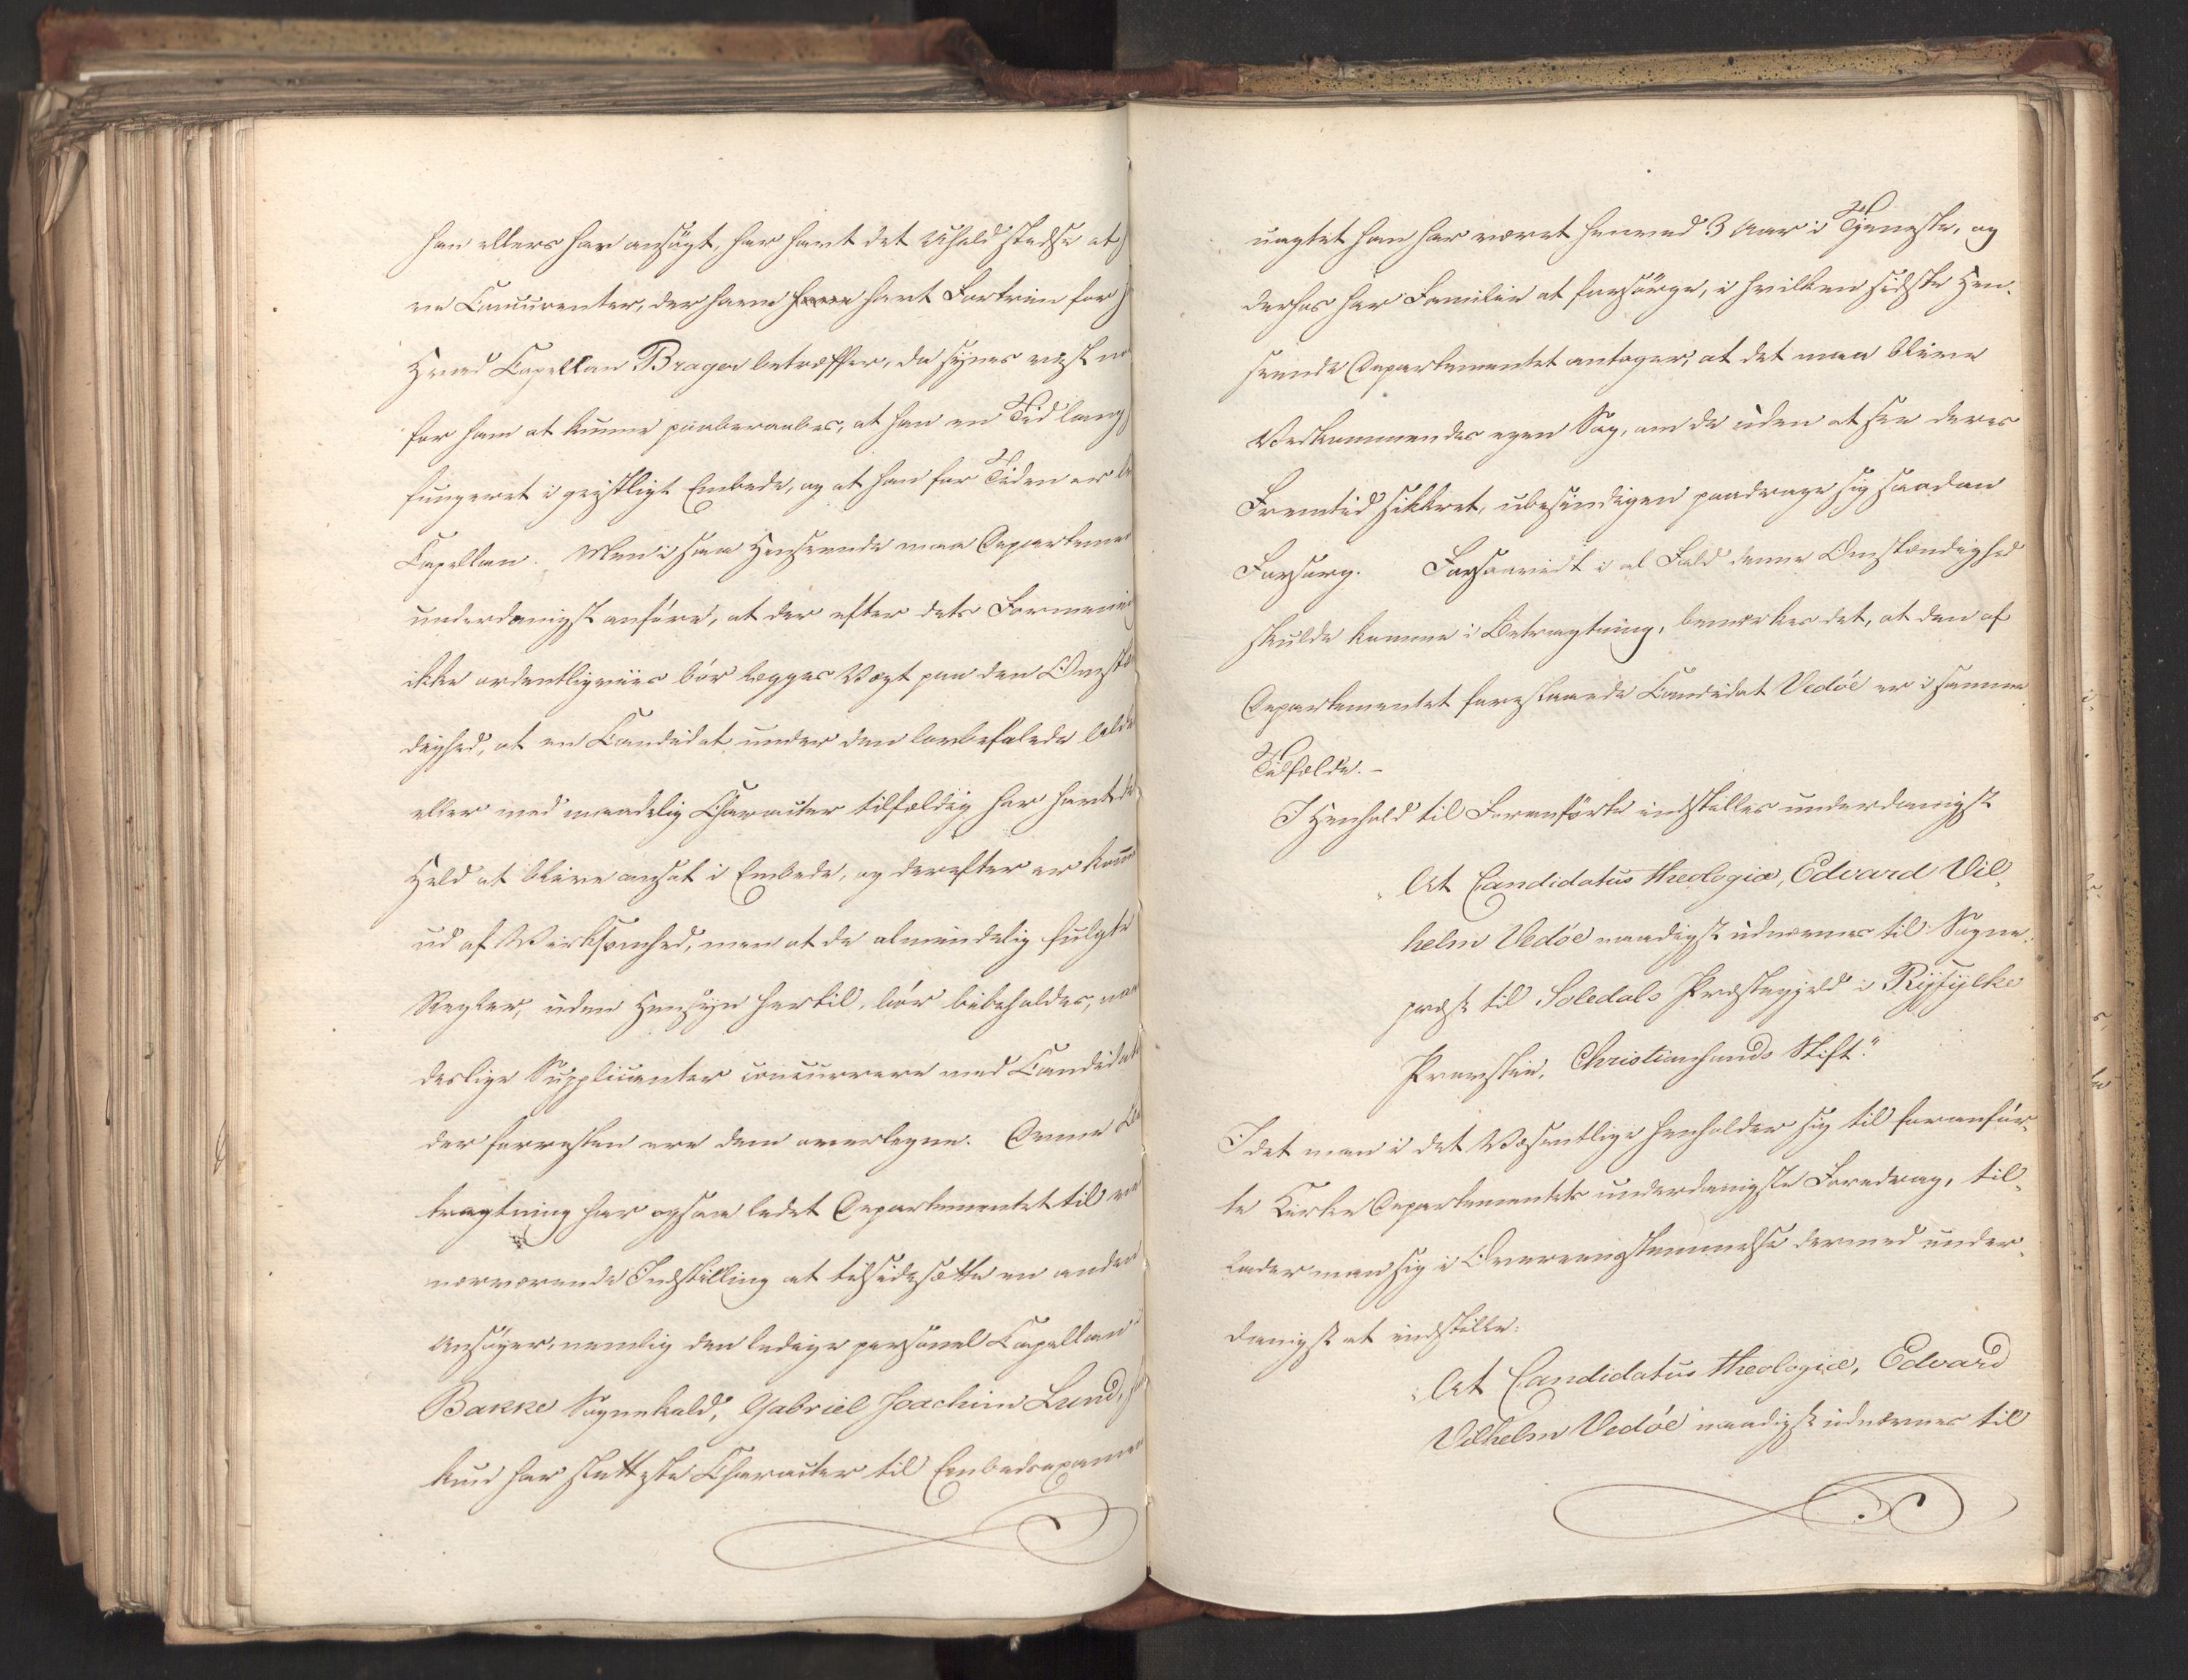 han ellers har ansøgt, har havt det Uheld stedse at
en Concurrenter, der have have havt Fortrin for
Hvad Capellan Brager betræffer, da synes vist no
for ham at kunne paaberaabes, at han en Tid lang
fungeret i geistligt Embede, og at han for Tiden er
Capellan. Men i saa Henseende maa Departeme
underdanigst anføre, at der efter dets Formenin
ikke ordentligviis bør lægges Vægt paa den Omst
dighed, at en Candidat under den lovbefalede Alde
eller med maadelig Character tilfældig har havt de
Held at blive ansat i Embede, og derefter er kom
ud af Virksomhed, men at de almindelig fulgte
Regler, uden Hensyn hertil, bør bibeholdes, naa
deslige Supplicanter concurrere med Candidat
der forresten ere dem overlegne. Denne Be
tragtning har ogsaa ledet Departementet til ved
nærværende Indstilling at tilsidesætte en anden
Ansøger, nemlig den ledige personel Capellan i
Bakke Sognekald, Gabriel Joachim Lund,
kun har sletteste Character til Embedsexamen
uagtet han har været henved 3 Aar i Tjeneste, og
derhos har Familie at forsørge, i hvilken sidste Hen-
seende Departementet antager, at det maa blive
Vedkommendes egen Sag, om de uden at see deres
Fremtid sikkret, ubesindigen paadrage sig saadan
Forsorg. Forsaavidt i al Fald denne Omstændighed
skulde komme i Betragtning, bemærkes det, at den af
Departementet foreslaaede Candidat Vedöe er i samme
Tilfælde.-
I Henhold til Foranførte indstilles underdanigst
"At Candidatus theologiæ, Edvard Vil-
helm Vedöe naadigst udnævnes til Sogne-
præst til Soledals Præstegjeld i Ryfylke
Provstie, Christianssands Stift."
Idet man i det Væsentlige henholder sig til foranfør-
te Kirke Departementets underdanigste Foredrag, til-
lader man sig i Overeensstemmelse dermed under-
danigst at indstille:
"At Candidatus theologiæ, Edvard
Vilhelm Vedöe naadigst udnævnes til